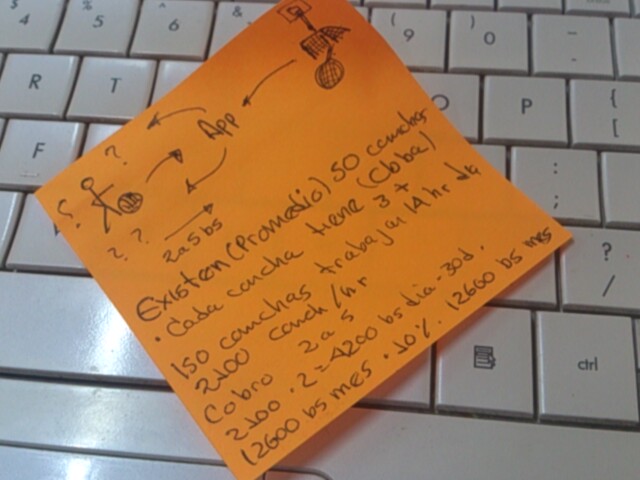 $ % ^ & ( ) _
4 5 6 9 0 -
R T O P { [
F : ;
? /
ctrl
App
?
?
? ?
2 a 5 bs
Existen (Promedio) 50 canchas
(Cbba)
· Cada cancha tiene 3 +
150 canchas trabajan 14 hr día
2100 canch/hr
Cobro 2 a 5
2100 · 2 = 4200 bs día · 30d.
12600 bs mes · 10% 12600 bs mes